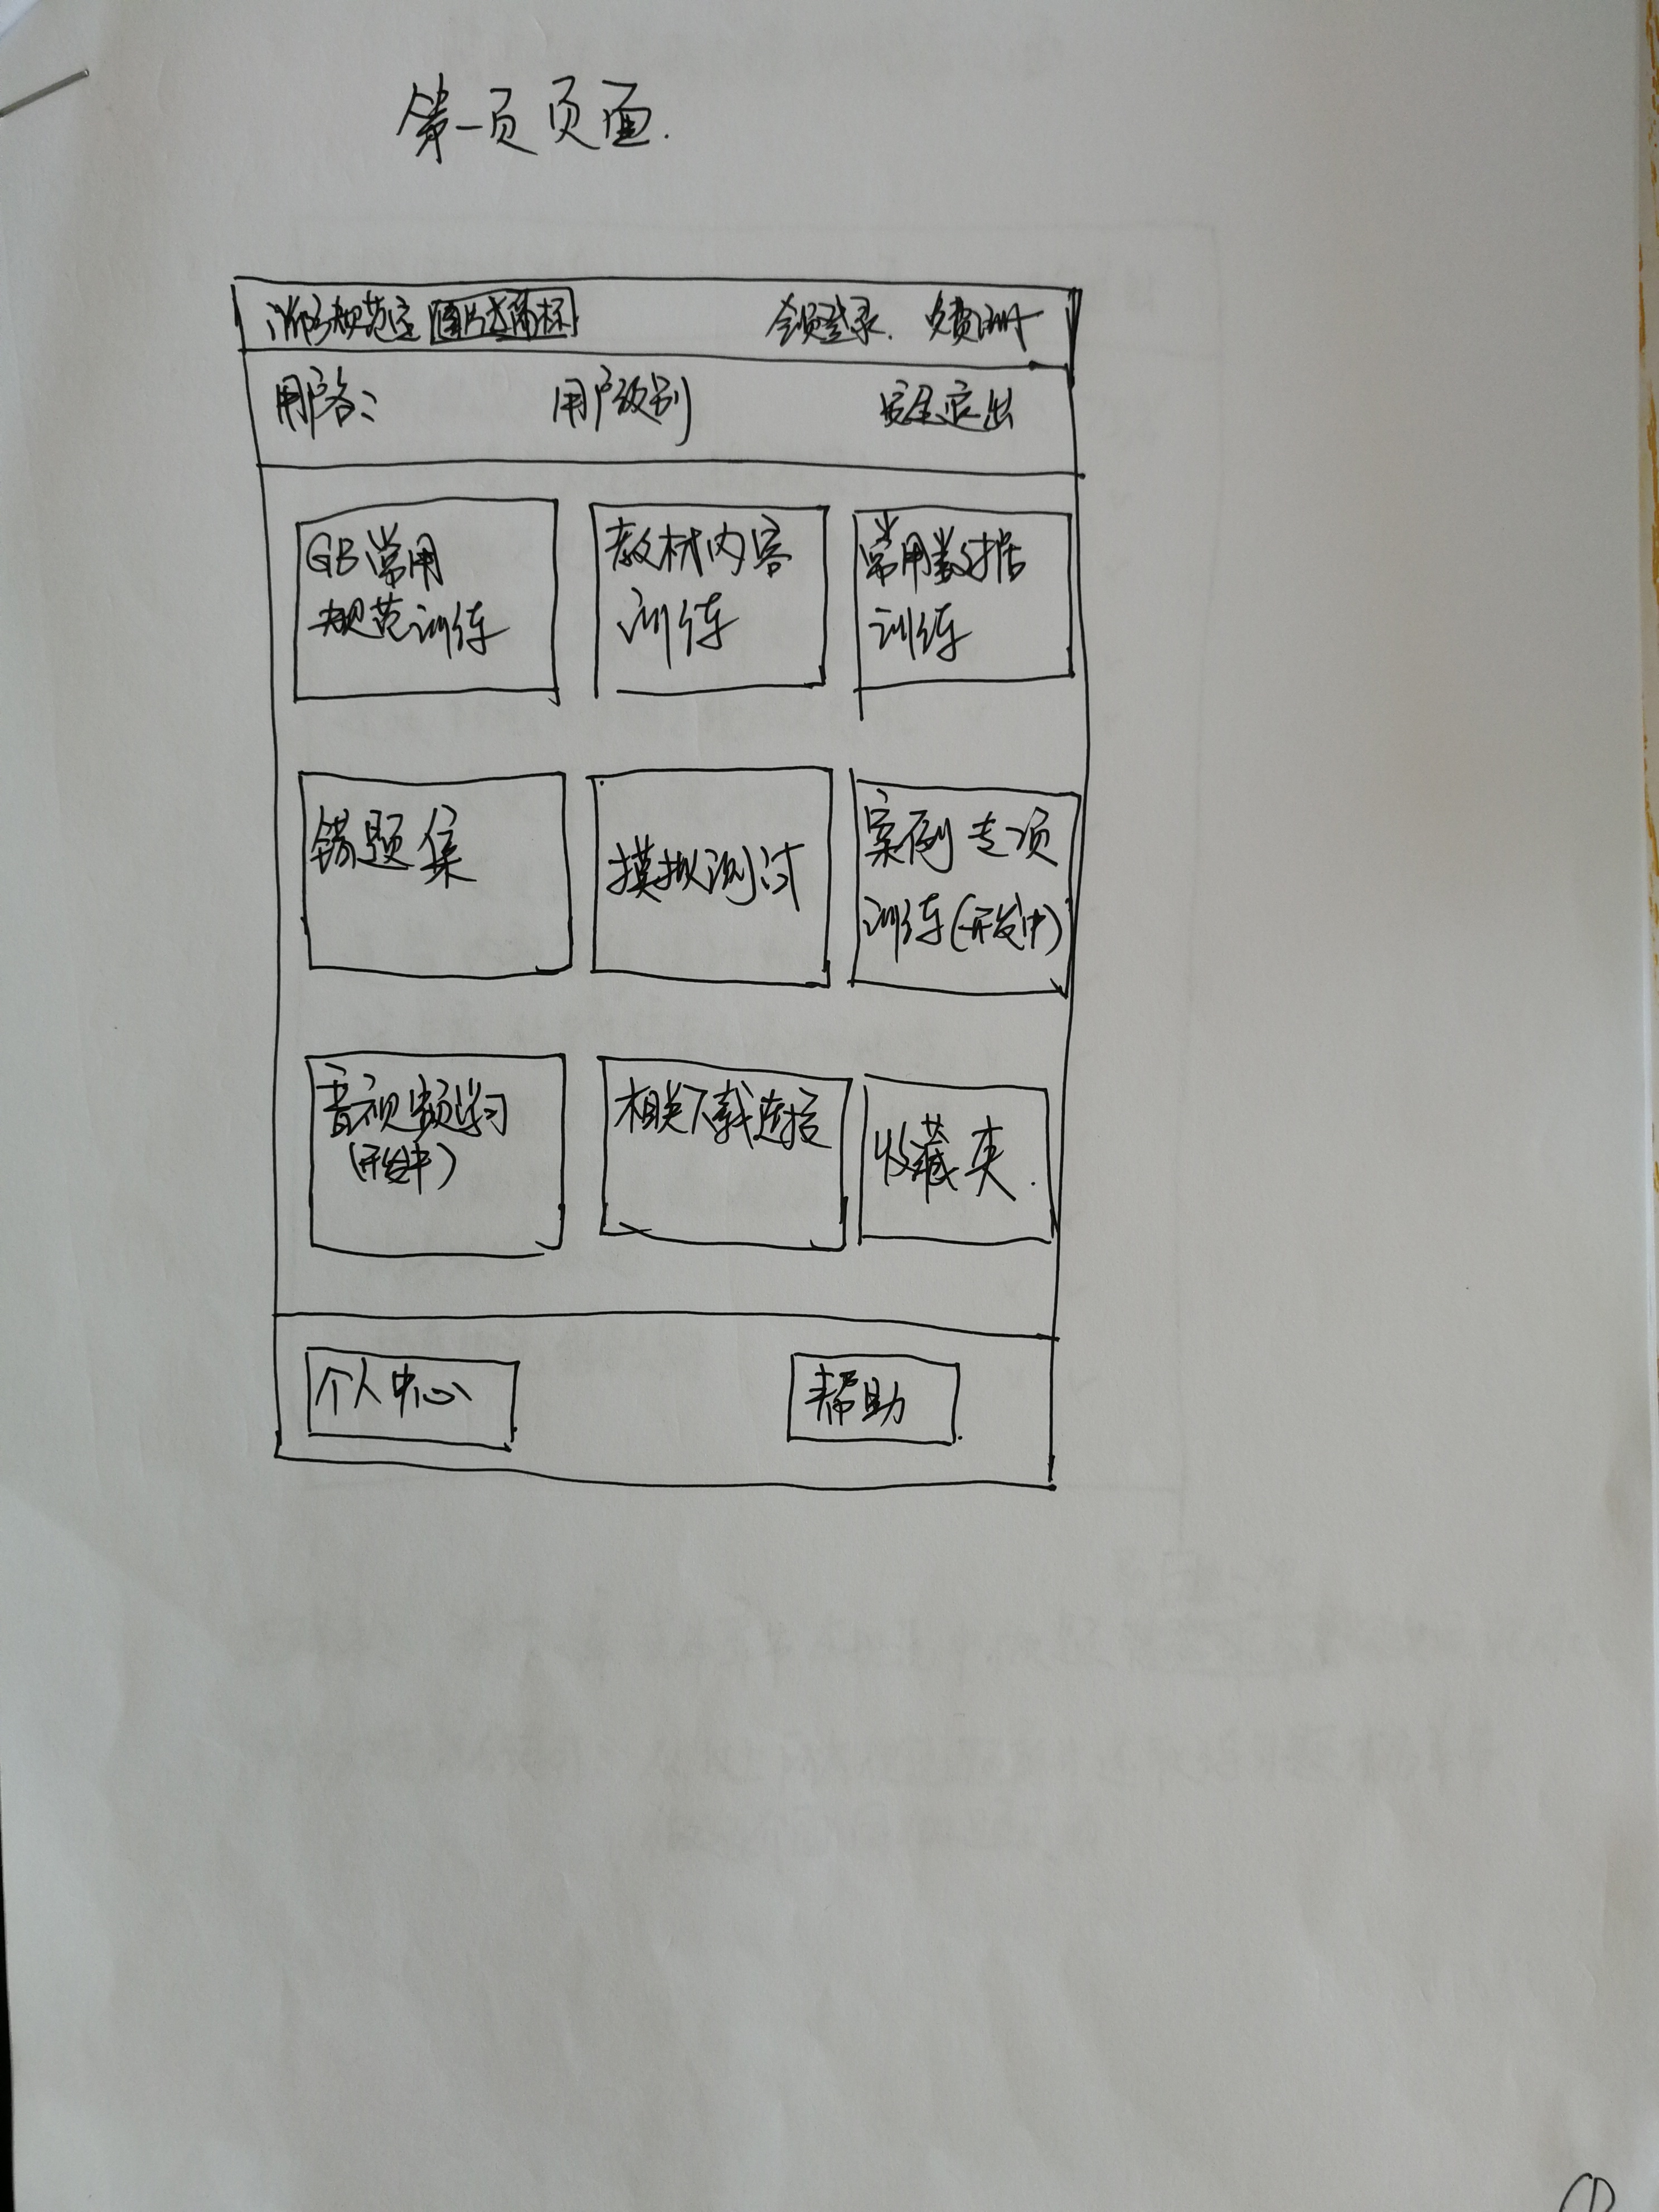 第一页页面.
消防规范宝 图片或商标 会员登录. 免费注册
用户名: 用户级别 安全退出
GB常用
规范训练
教材内容
训练
常用数据
训练
错题集
摸拟测试
案例专项
训练(开发中)
音视频学习
(开发中)
相关下载连接
收藏夹.
个人中心
帮助